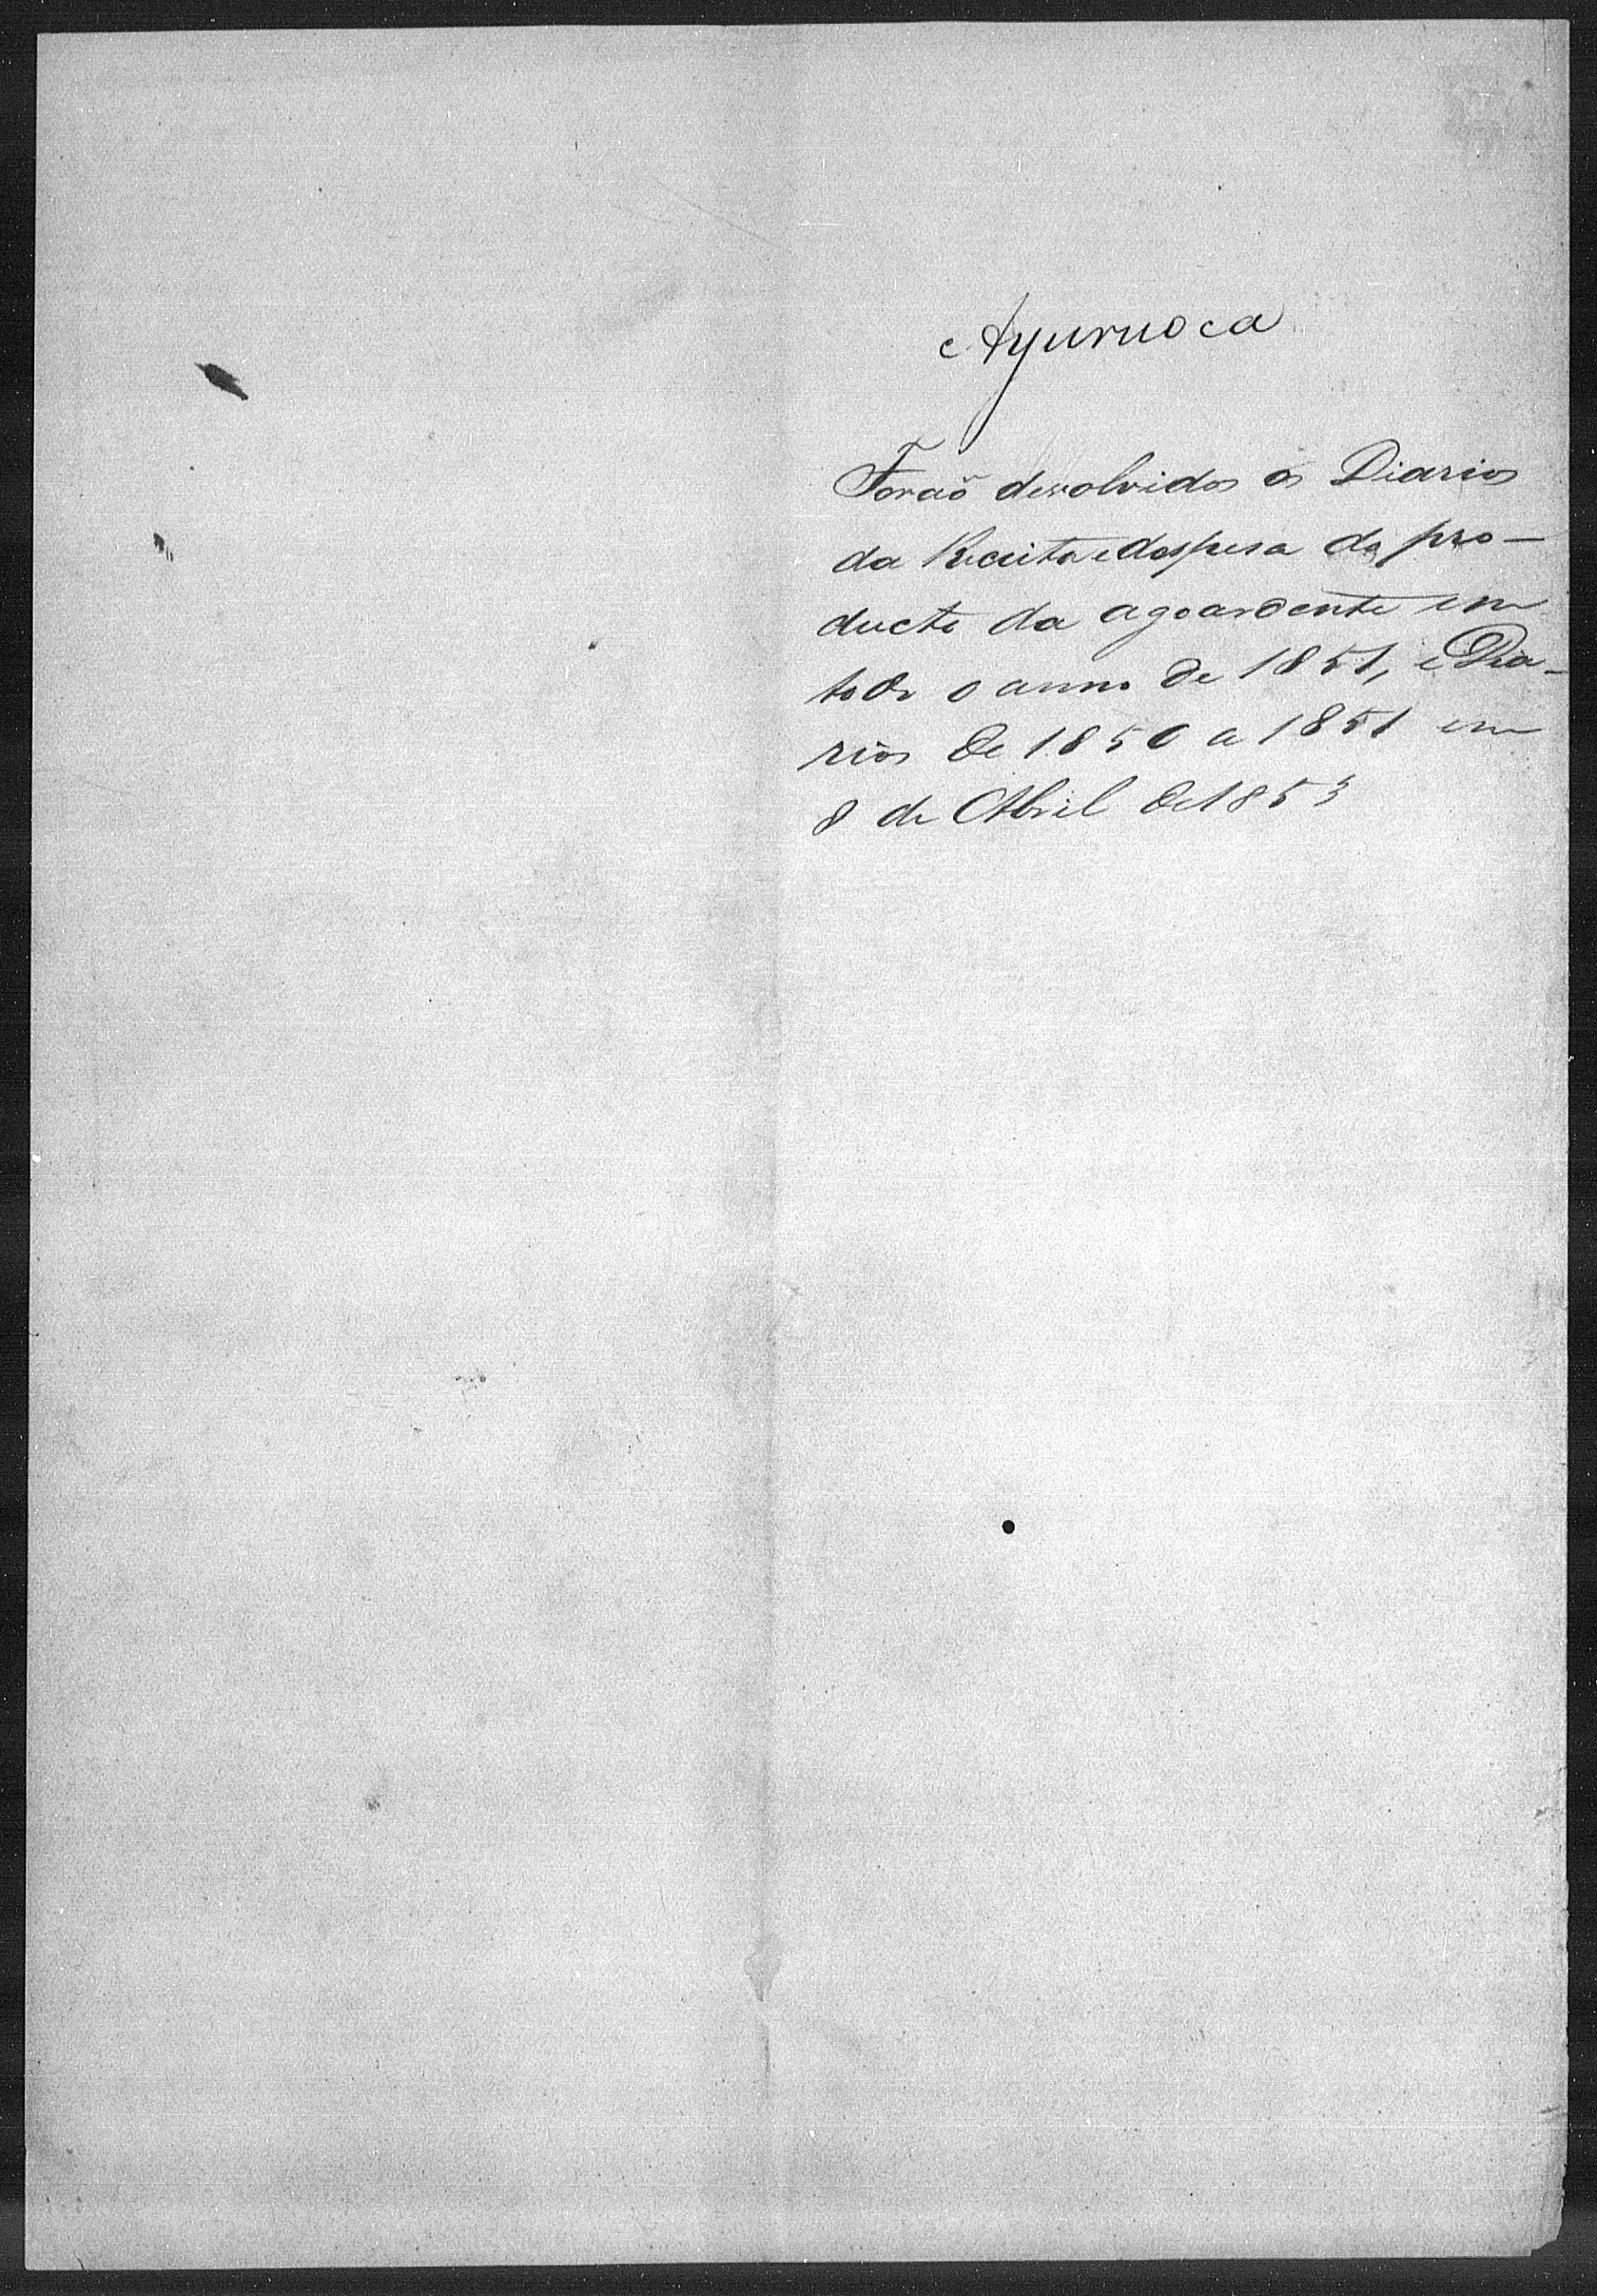 Ayuruoca
Foraõ devolvidos os Diarios
da Receita e despesa do pro-
ducto da agoardente em
todo o anno de 1851, e Dia-
rios de 1850 a 1851 em
8 de Abril de 1853